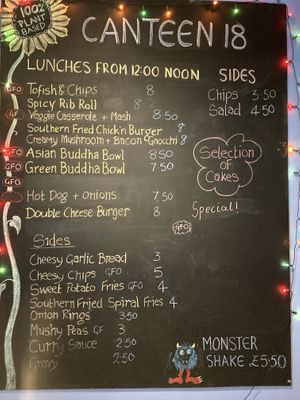 100%
PLANT
BASED
CANTEEN 18
LUNCHES FROM 12:00 NOON
GFO Tofish & Chips 8
Spicy Rib Roll 8
Veggie Casserole + Mash 8.50
Southern Fried Chick'n Burger 8
Creamy Mushroom + Bacon Gnocchi 8
GFO Asian Buddha Bowl 8.50
GFO Green Buddha Bowl 7.50
GFO
Hot Dog + onions 7.50
Double Cheese Burger 8
Sides
Cheesy Garlic Bread 3
Cheesy Chips GFO 5
Sweet Potato Fries GFO 4
Southern Fried Spiral Fries 4
Onion Rings 3.50
Mushy Peas GF 3
Curry Sauce 2.50
Gravy 2.50
SIDES
Chips 3.50
Salad 4.50
Selection
of
Cakes
Special!
MONSTER
SHAKE £5.50